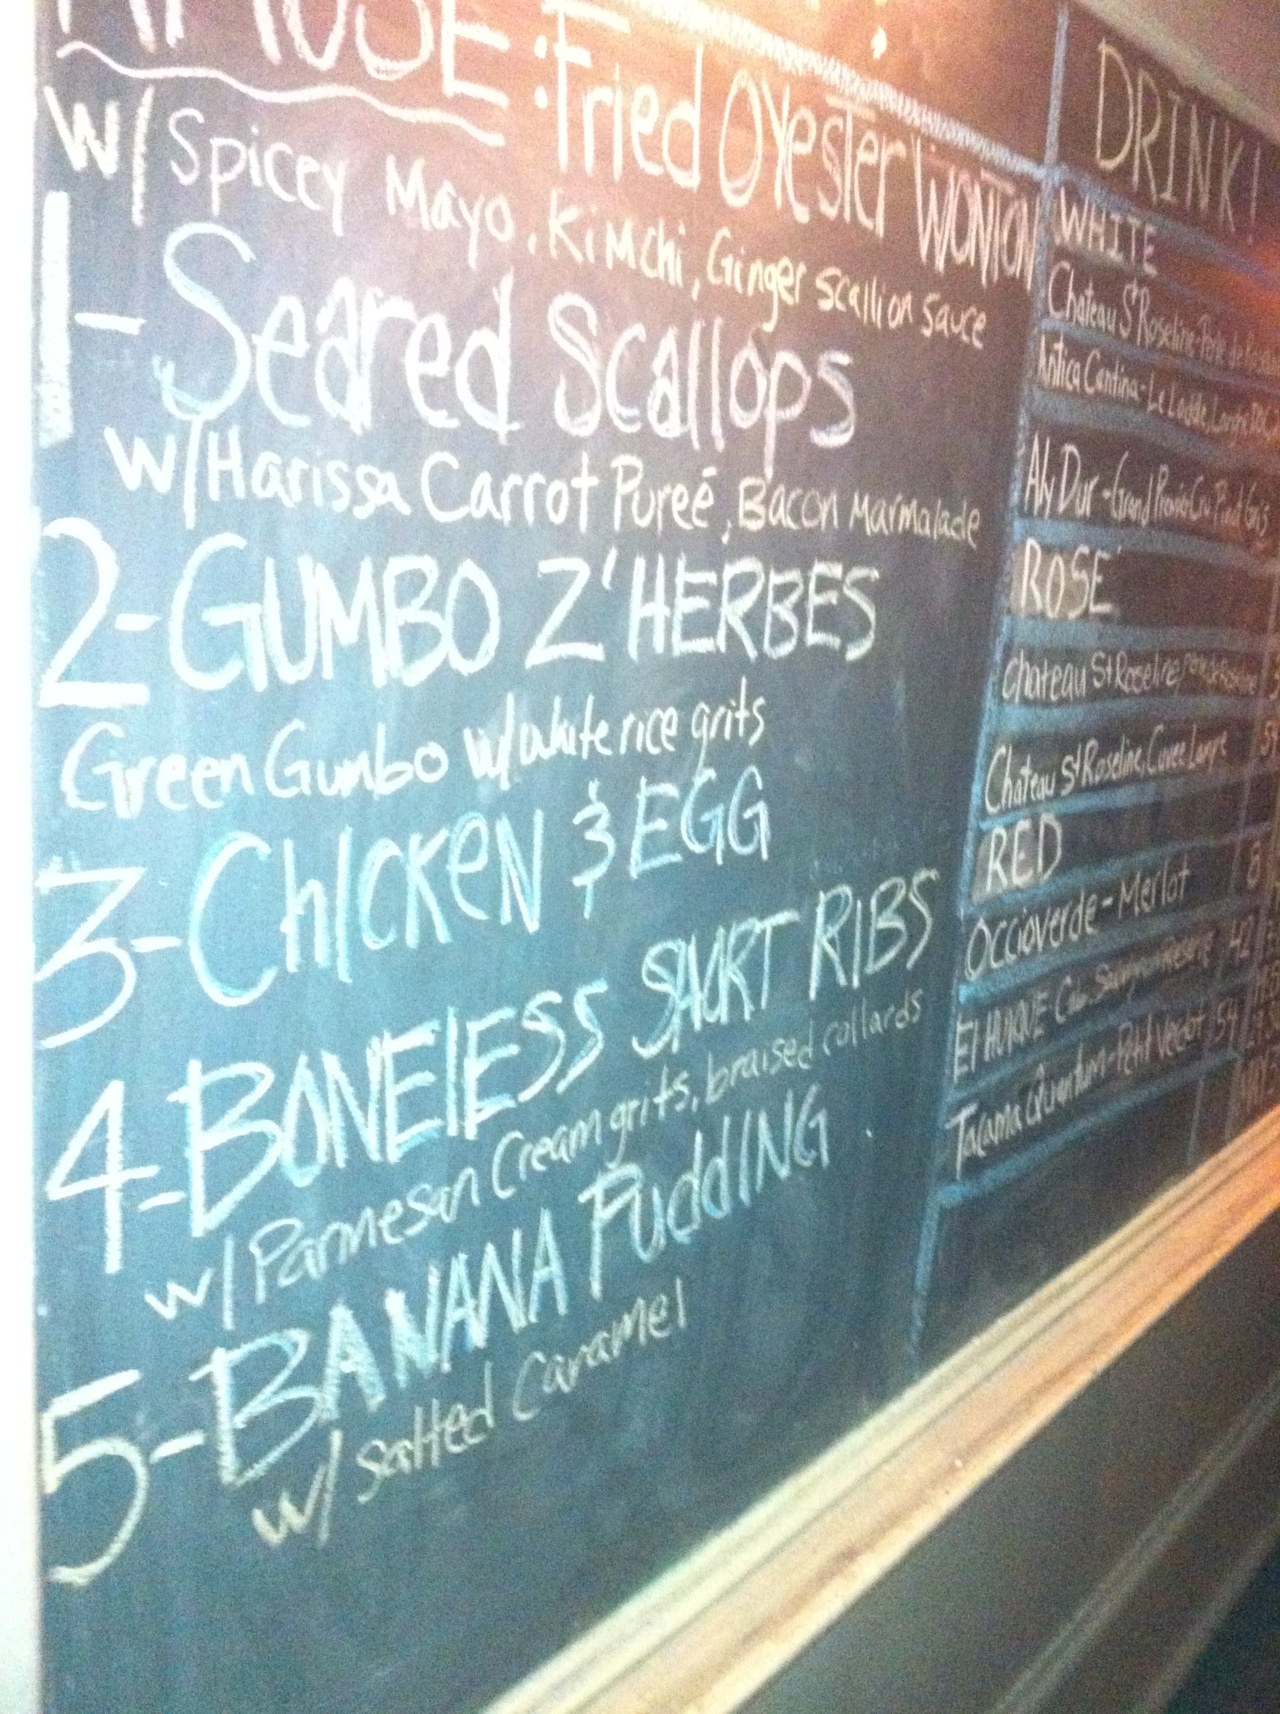 AMUSE: Fried OYester WONTON
w/ Spicey Mayo, KiMchi, Ginger scallion sauce
1- Seared Scallops
w/ Harissa Carrot Pureé, Bacon Marmalade
2- GUMBO Z'HERBES
Green Gumbo w/ white rice grits
3- ChICKeN & EGG
4- BONElESS SHORT RIBS
w/ Parmesan Cream grits, braised collards
5- BANANA PuddING
w/ Salted Caramel
DRINK!
WHITE
Chateau St Roseline-
Antica Cantina-
Aly Dur-Grand Pinot Gris
ROSÉ
Chateau St Roseline,
Chateau St Roseline, Cuvee Lampe
RED
Occhioverde - Merlot
El HUIQUE- Cab. Sauvignon Reserve 42
Tacama Quantum- Petit Verdot 54